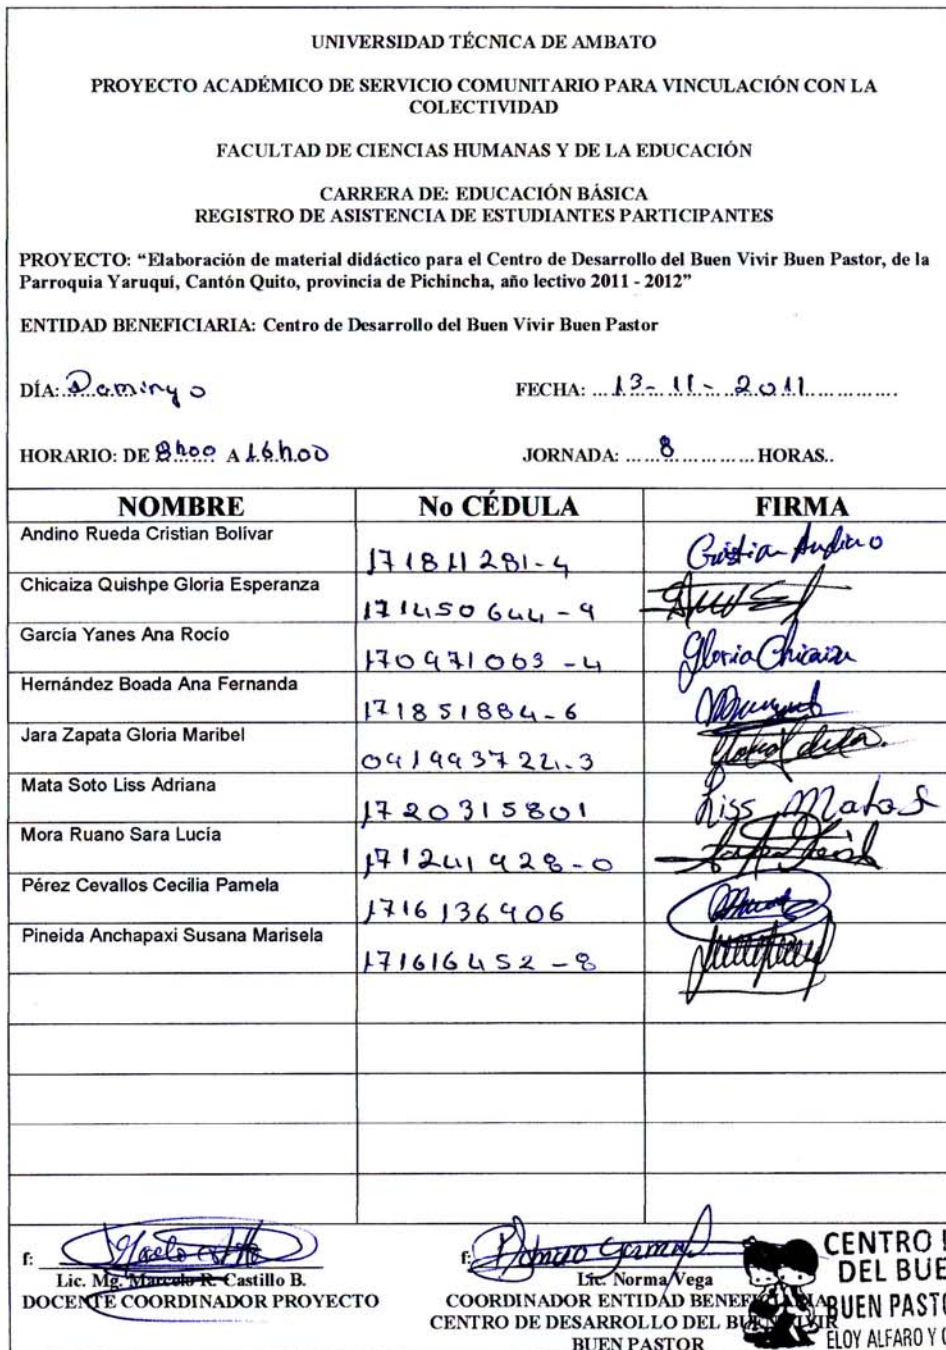 UNIVERSIDAD TÉCNICA DE AMBATO
PROYECTO ACADÉMICO DE SERVICIO COMUNITARIO PARA VINCULACIÓN CON LA
COLECTIVIDAD
FACULTAD DE CIENCIAS HUMANAS Y DE LA EDUCACIÓN
CARRERA DE: EDUCACIÓN BÁSICA
REGISTRO DE ASISTENCIA DE ESTUDIANTES PARTICIPANTES
PROYECTO: “Elaboración de material didáctico para el Centro de Desarrollo del Buen Vivir Buen Pastor, de la
Parroquia Yaruquí, Cantón Quito, provincia de Pichincha, año lectivo 2011 - 2012”
ENTIDAD BENEFICIARIA: Centro de Desarrollo del Buen Vivir Buen Pastor
DÍA: Domingo FECHA: 13-11-2011
HORARIO: DE 8h00 A 16h00 JORNADA: 8 HORAS..
NOMBRE No CÉDULA FIRMA
Andino Rueda Cristian Bolívar 171811281-4 Cristian Andino
Chicaiza Quishpe Gloria Esperanza 171450644-9
García Yanes Ana Rocío 170971063-4 Gloria Chicaiza
Hernández Boada Ana Fernanda 171851884-6
Jara Zapata Gloria Maribel
Mata Soto Liss Adriana 1720315801 Liss Mata S
Mora Ruano Sara Lucía 171241928-0
Pérez Cevallos Cecilia Pamela 1716136906
Pineida Anchapaxi Susana Marisela 171616452-8
f: f:
Lic. Mg. Marcelo R. Castillo B. Lic. Norma Vega
DOCENTE COORDINADOR PROYECTO COORDINADOR ENTIDAD BENEFICIARIA
CENTRO DE DESARROLLO DEL BUEN VIVIR
BUEN PASTOR
CENTRO
DEL BUE
BUEN PASTO
ELOY ALFARO Y